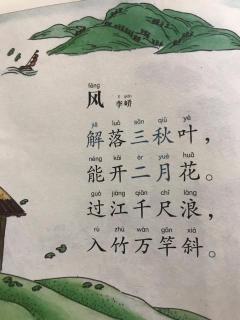 fēng
风 lǐ qiáo 李峤
jiě luò sān qiū yè
解落三秋叶，
néng kāi èr yuè huā
能开二月花。
guò jiāng qiān chǐ làng
过江千尺浪，
rù zhú wàn gān xié
入竹万竿斜。